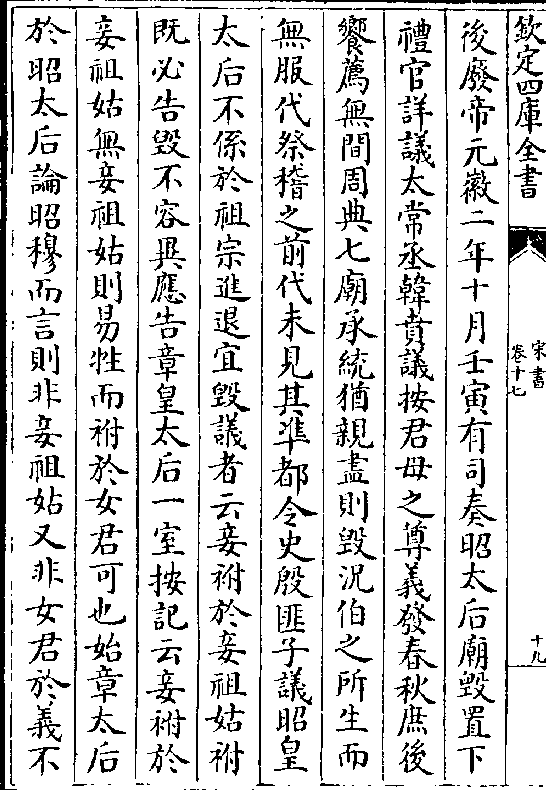 欽定四庫全書
宋書
卷十七
十九
後廢帝元徽二年十月壬寅有司奏昭太后廟毀置下
禮官詳議太常丞韓賁議按君母之尊義發春秋庶後
饗薦無間周典七廟承統猶親盡則毀況伯之所生而
無服代祭稽之前代未見其準都令史殷匪子議昭皇
太后不係於祖宗進退宜毀議者云妾祔於妾祖姑祔
既必告毀不容異應告章皇太后一室按記云妾祔於
妾祖姑無妾祖姑則易牲而祔於女君可也始章太后
於昭太后論昭穆而言則非妾祖姑又非女君於義不